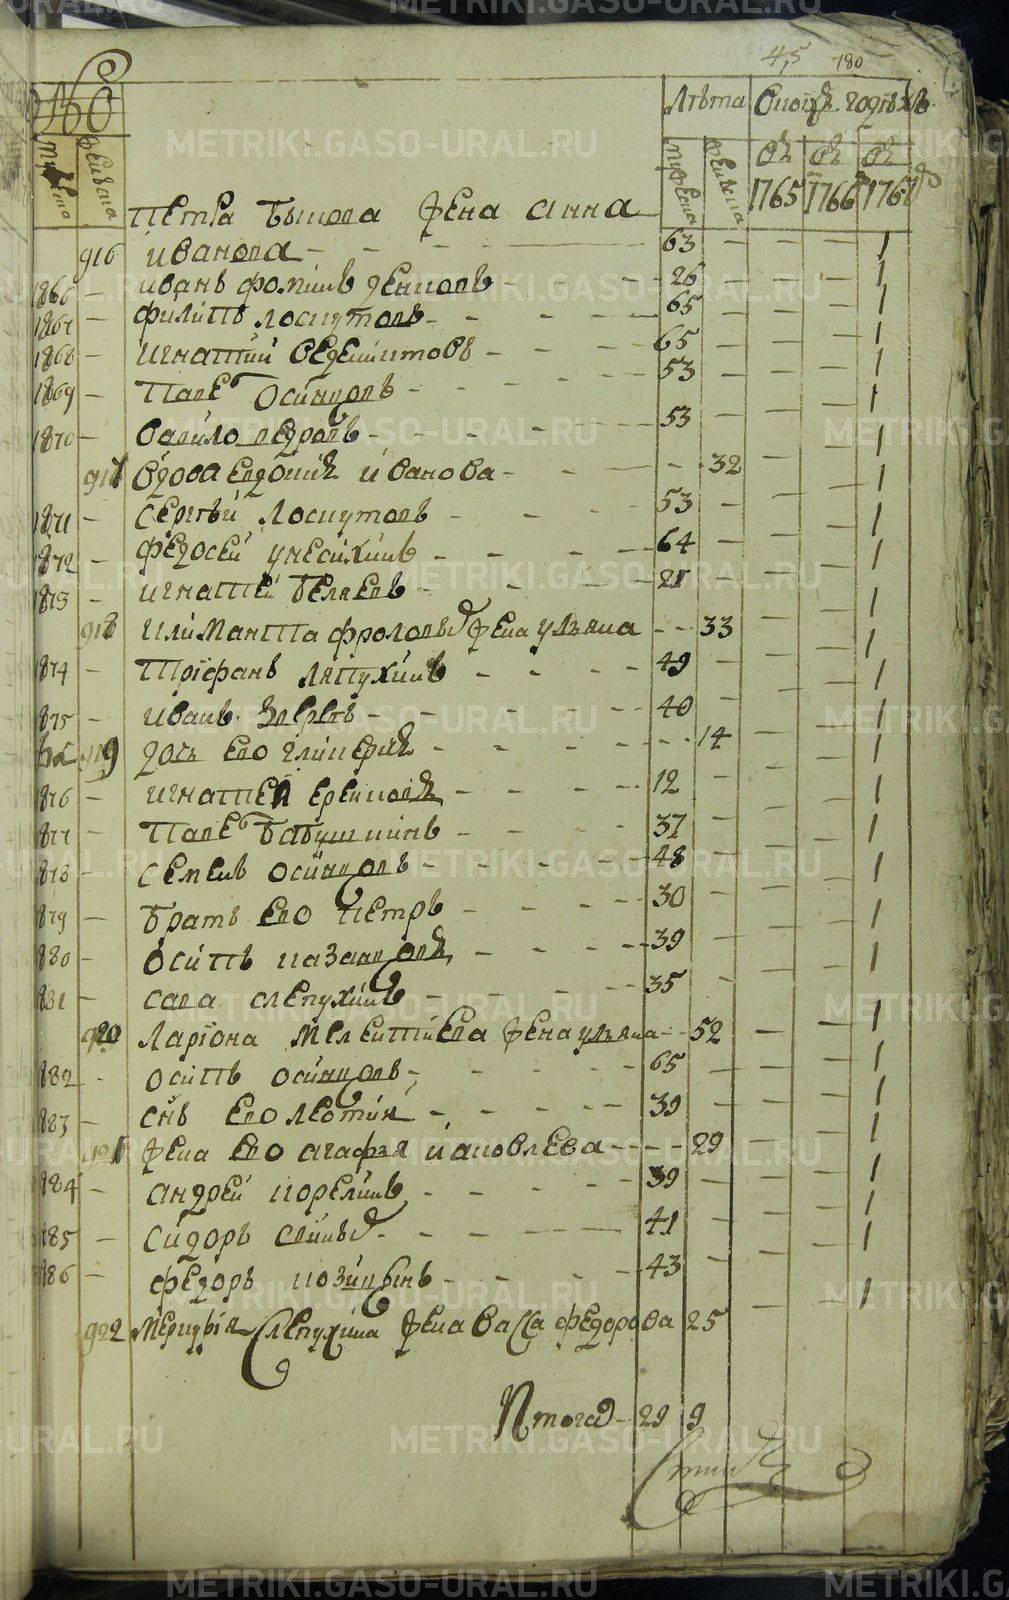 4,5 180
No Лѣта Скоихъ годовъ
мужеска женска мужеска женска съ съ съ
1765 1766 1767
Петра Быкова жена анна
916 иванова - - - 63 - - - 1
1866 - иванъ фоминъ денисовъ - - 26 - - 1
1867 - филипъ лоскутовъ - - - 65 - - - 1
1868 - игнатий ведениктовъ - - - 65 - - - 1
1869 - Павелъ Осинцовъ - - - 53 - - - 1
1870 - данило ведровъ - - - 53 - - - 1
917 вдова евдокия иванова - - - 32 - - 1
1871 - сергѣй лоскутовъ - - - 53 - - - 1
1872 - федосей унесихинъ - - - 64 - - - 1
1873 - игнатей беляевъ - - - 21 - - - 1
918 илимантта фролова жена ульяна - - 33 - - 1
1874 - трїфанъ ляпухинъ - - - 49 - - - 1
1875 - иванъ зверевъ - - - 40 - - - 1
919 дочь ево гликерия - - - 14 - - 1
1876 - игнатей еремповъ - - - 12 - - - 1
1877 - Павелъ Бабушкинъ - - - 37 - - - 1
1878 - семенъ осинцовъ - - - 48 - - - 1
1879 - братъ ево петръ - - - 30 - - - 1
1880 - осипъ казанцовъ - - - 39 - - - 1
1881 - сава слепухинъ - - - 35 - - - 1
920 Ларїона мелентиева жена ульяна - - 52 - - 1
1882 - осипъ осинцовъ - - - 65 - - - 1
1883 - снъ ево леотин - - - 39 - - - 1
921 жена ево агафья иаковлева - - - 29 - - 1
1884 - андрей корелинъ - - - 39 - - - 1
1885 - сидоръ - - - 41 - - - 1
1886 - федоръ козицынъ - - - 43 - - - 1
922 меркурия слепухина жена васса федорова 25 - - 1
Итого - 29 9
METRIKI.GASO-URAL.RU